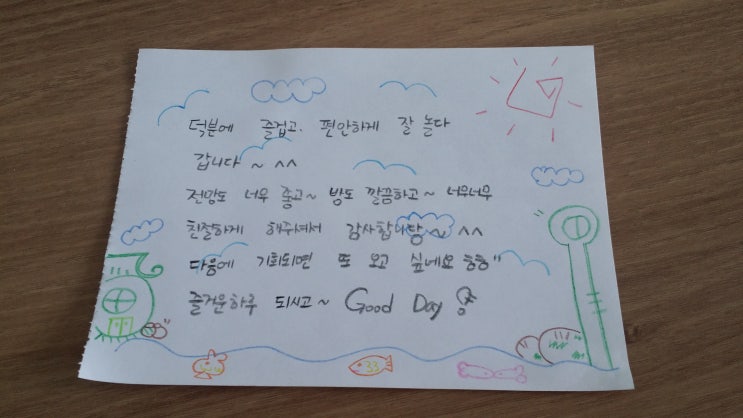 덕분에 즐겁고. 편안하게 잘 놀다
갑니다 ~ ^^
전망도 너무 좋고~ 방도 깔끔하고~ 너무너무
친절하게 해주셔서 감사합니당 ~ ^^
다음에 기회되면 또 오고 싶네요 ㅎㅎ"
즐거운하루 되시고~ Good Day